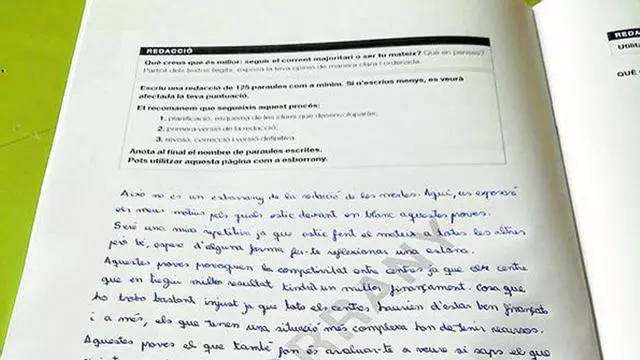 REDACCIÓ
Què creus que és millor: seguir el corrent majoritari o ser tu mateix? Què en penses?
Partint dels textos llegits, exposa la teva opinió de manera clara i ordenada.
Escriu una redacció de 125 paraules com a mínim. Si n'escrius menys, es veurà
afectada la teva puntuació.
Et recomanem que segueixis aquest procés:
1. planificació, esquema de les idees que desenvoluparàs;
2. primera versió de la redacció;
3. revisió, correcció i versió definitiva.
Anota al final el nombre de paraules escrites.
Pots utilitzar aquesta pàgina com a esborrany.
REDA
Utilit
QUÈ
Això no és un esborrany de la redacció de les modes. Aquí, us exposaré
els meus motius pels quals estic deixant en blanc aquestes proves.
Seré una mica repetitiva ja que estic fent el mateix a totes les altres
però bé, espero d'alguna forma fer-te reflexionar una estona.
Aquestes proves provoquen la competivitat entre centres ja que el centre
que en tregui millor resultat tindrà un millor finançament. Cosa que
ho trobo bastant injust ja que tots els centres haurien d'estar ben finançats
i a més, els que tenen una situació més complexa han de tenir recursos.
Aquestes proves el que també fan és avaluar-te a veure si saps el que
RRANY